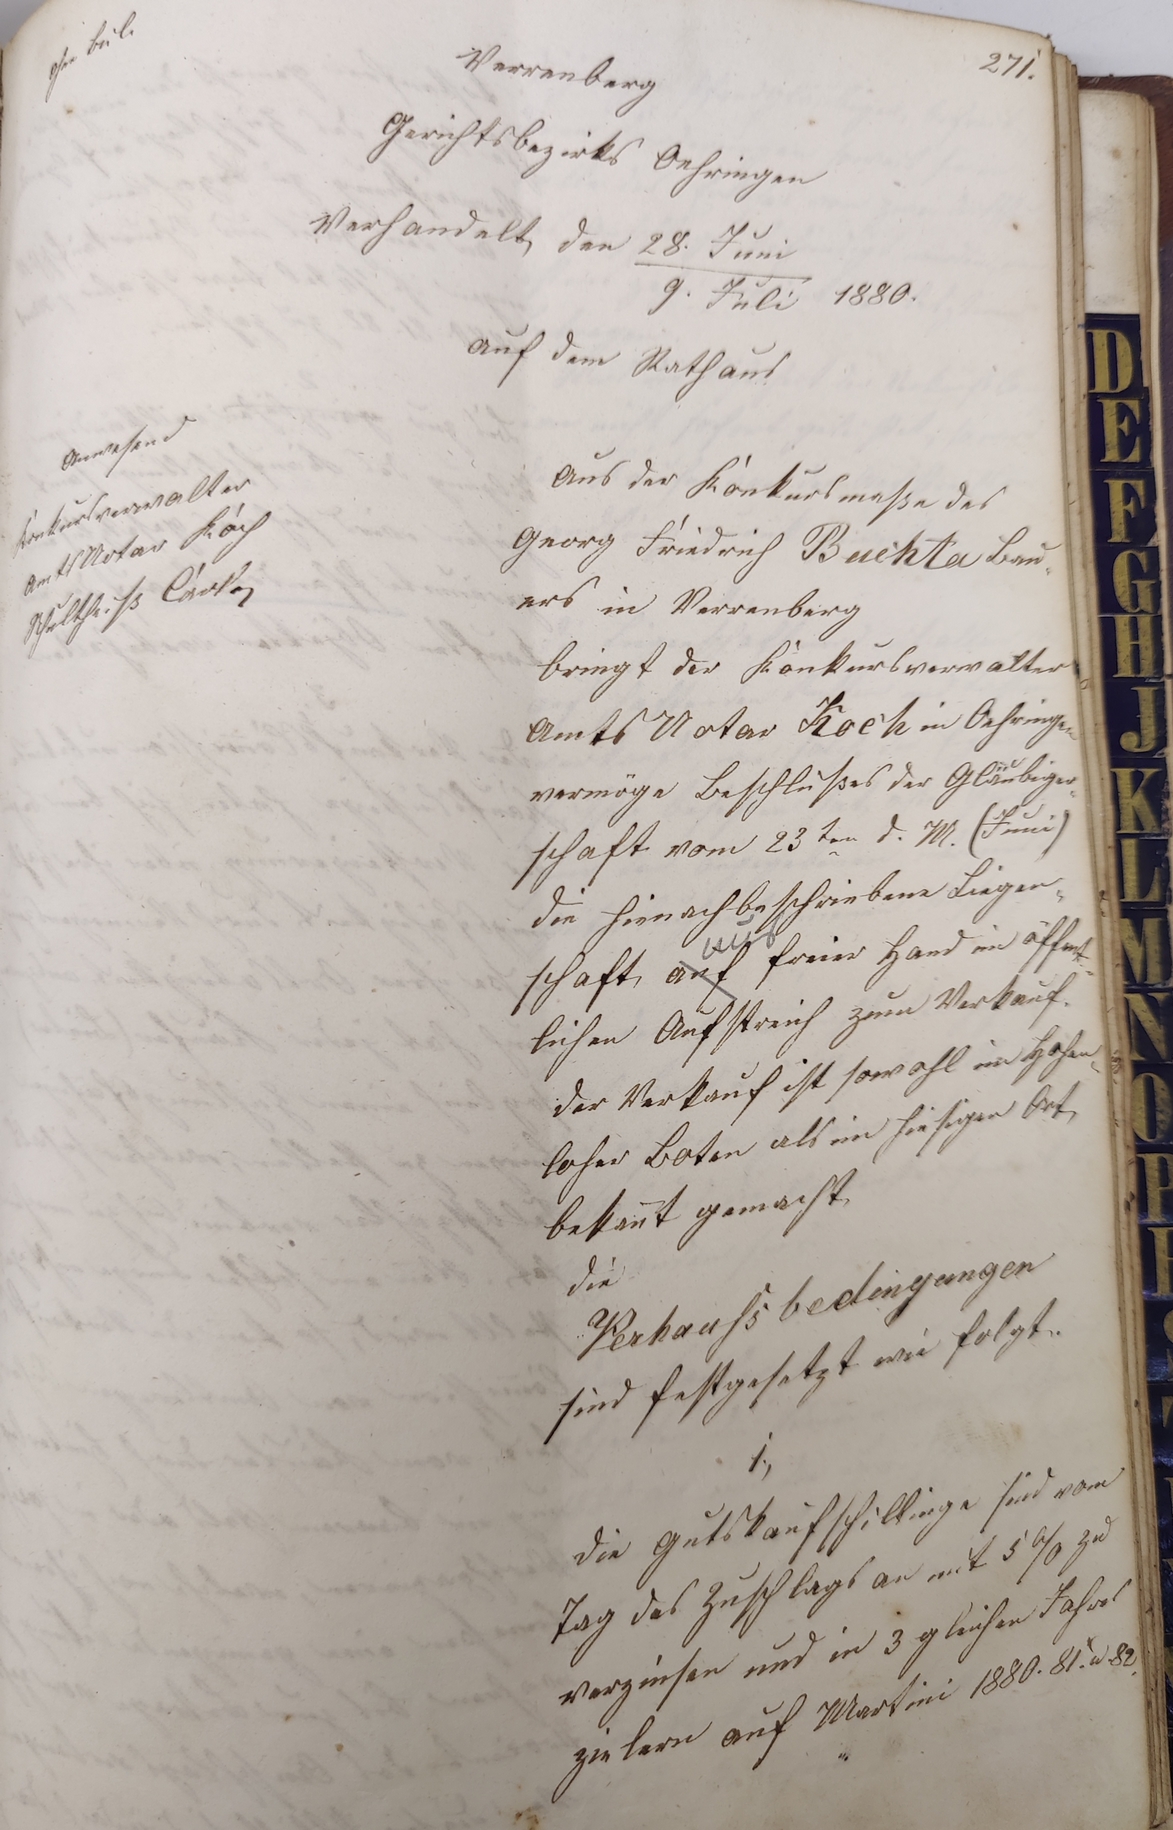 271.
Verrenberg
Gerichtsbezirks Oehringen
Verhandelt, den 28. Juni
9. Juli 1880.
auf dem Rathaus
Anwesend
Konkursverwalter
Amts Notar Koch
Schultheiß
Aus der Konkursmaße des
Georg Friedrich Buchta Bau-
ers in Verrenberg
bringt der Konkursverwalter
Amts Notar Koch in Oehringen
vermöge Beschlußes der Gläubiger-
schaft vom 23ten d. M. (Juni)
die hienachbeschriebene Liegen-
schaft, auf aus freier Hand im öffent-
lichen Aufstreich zum Verkauf.
der Verkauf ist sowohl im Hohen-
loher Boten als im hiesigen Ort,
bekannt gemacht,
die
Verkaufsbedingungen
sind festgesetzt wie folgt.
1.,
die Gutskaufschillinge sind vom
Tag des Zuschlags an mit 5 % zu
verzinsen und in 3 gleichen Jahres
zielern auf Martini 1880. 81. u 82.
D
E
F
G
H
J
K
L
M
N
O
P